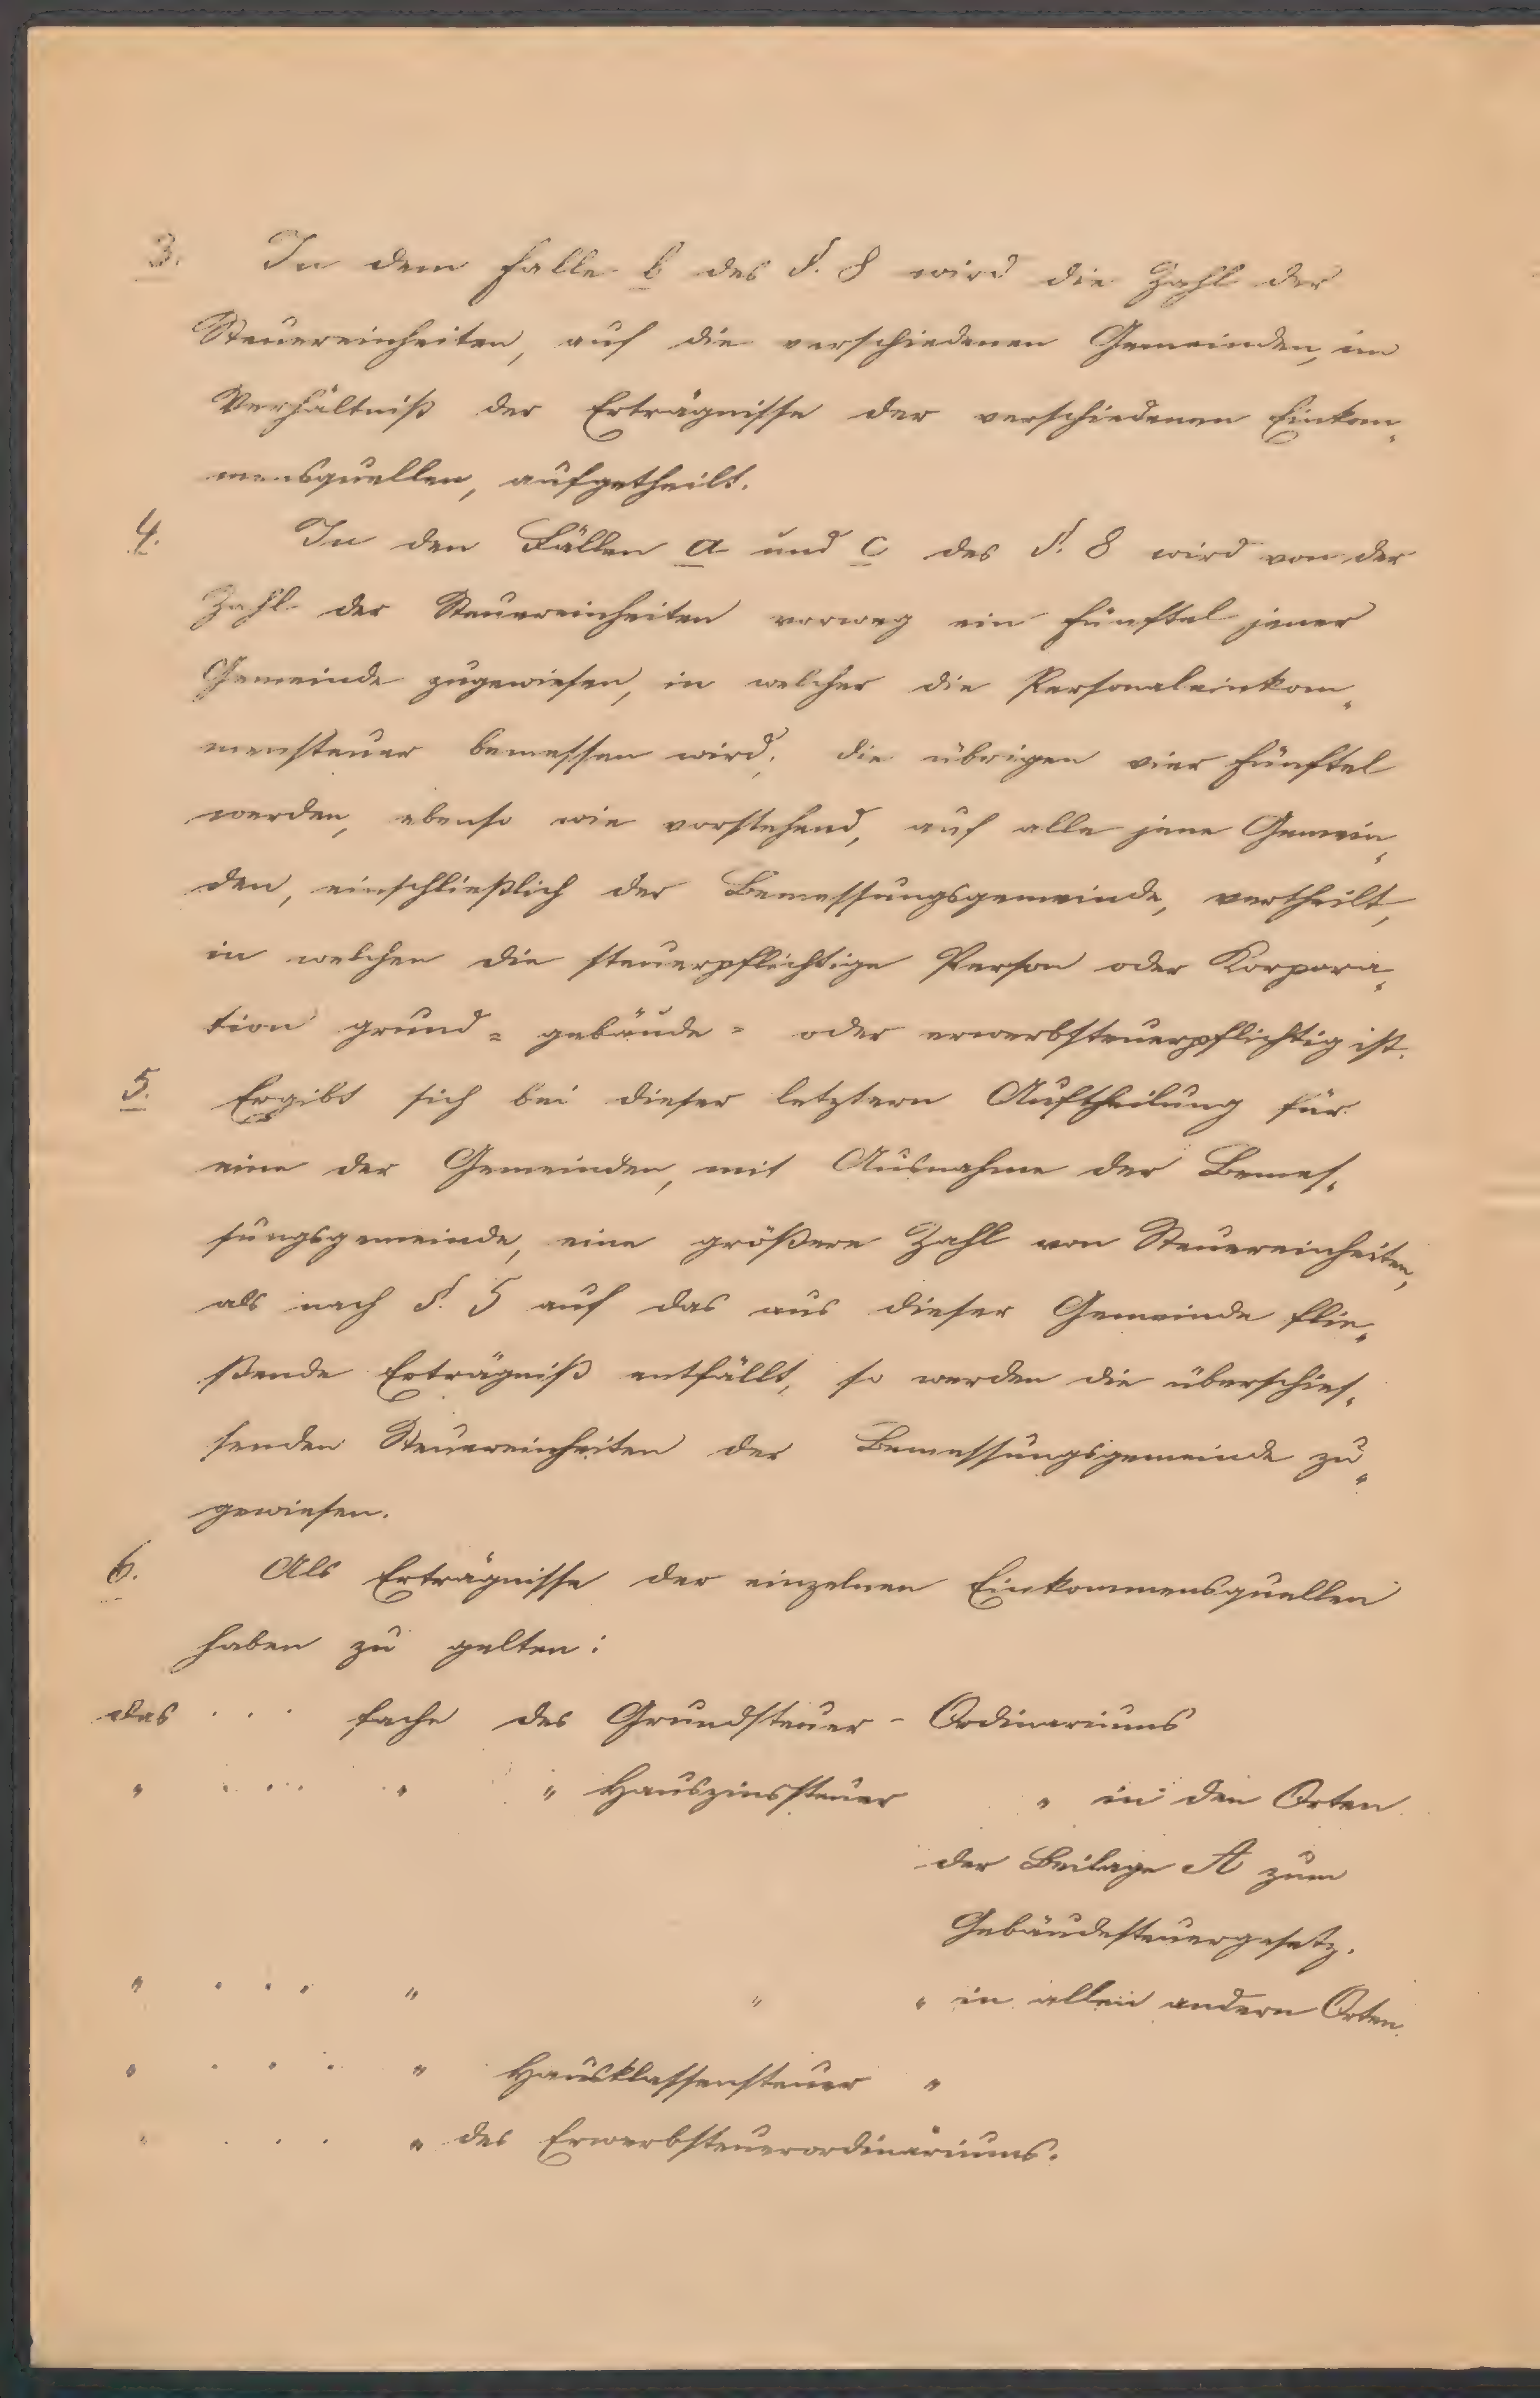 3. In dem Falle b des §. 8 wird die Zahl der
Steuereinheiten, auf die verschiedenen Gemeinden, im
Verhältniß der Erträgnisse der verschiedenen Einkom„
mensquellen, aufgetheilt.
4. In den Fällen a und c des §. 8 wird von der
Zahl der Steuereinheiten vorweg ein Fünftel jener
Gemeinde zugewiesen, in welcher die Personaleinkom„
mensteuer bemessen wird; die übrigen vier Fünftel
werden, ebenso wie vorstehend, auf alle jene Gemein„
den, einschließlich der Bemessungsgemeinde, vertheilt,
in welchen die steuerpflichtige Person oder Korpora„
tion grund= gebäude= oder erwerbsteuerpflichtig ist.
5. Ergibt sich bei dieser letztern Auftheilung für
eine der Gemeinden, mit Ausnahme der Bemes„
sungsgemeinde, eine größere Zahl von Steuereinheiten,
als nach §. 5 auf das aus dieser Gemeinde flie„
ßende Erträgniß entfällt, so werden die überschies„
senden Steuereinheiten der Bemessungsgemeinde zu„
gewiesen.
6. Als Erträgnisse der einzelnen Einkommensquellen
haben zu gelten:
das . . . fache des Grundsteuer - Ordinariums
" . . . . " " Hauszinssteuer " in den Orten
der Beilage A zum
Gebäudesteuergesetz.
" . . . " " " in allen andern Orten.
" . . . " Hausklassensteuer "
" . . . " des Erwerbsteuerordinariums.